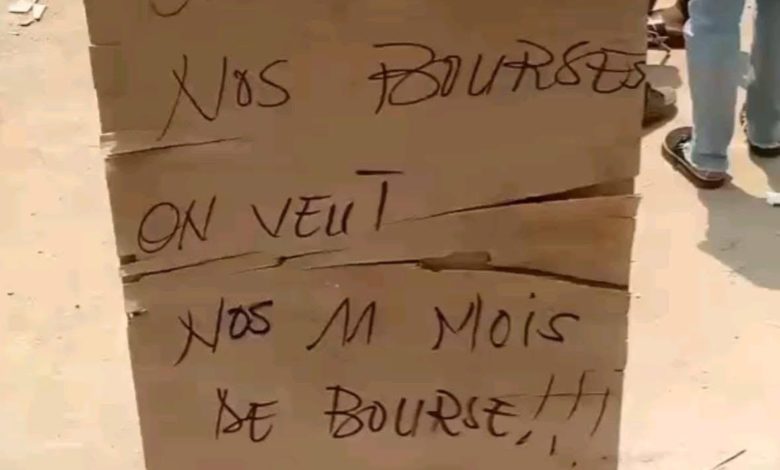 NOS BOURSES
ON VEUT
NOS 11 MOIS
DE BOURSE!!!